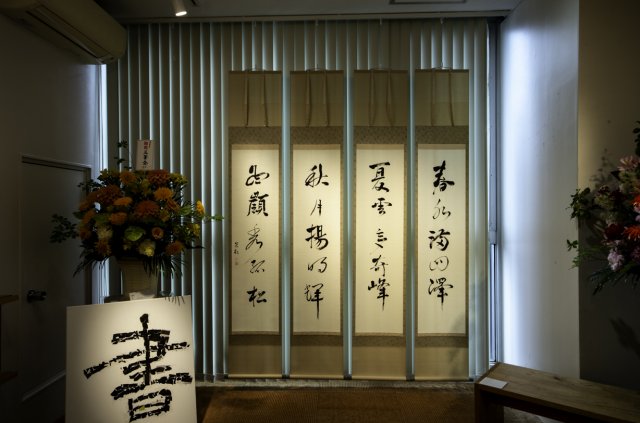 春水満四澤
夏雲多奇峰
秋月揚明輝
冬嶺秀孤松
書